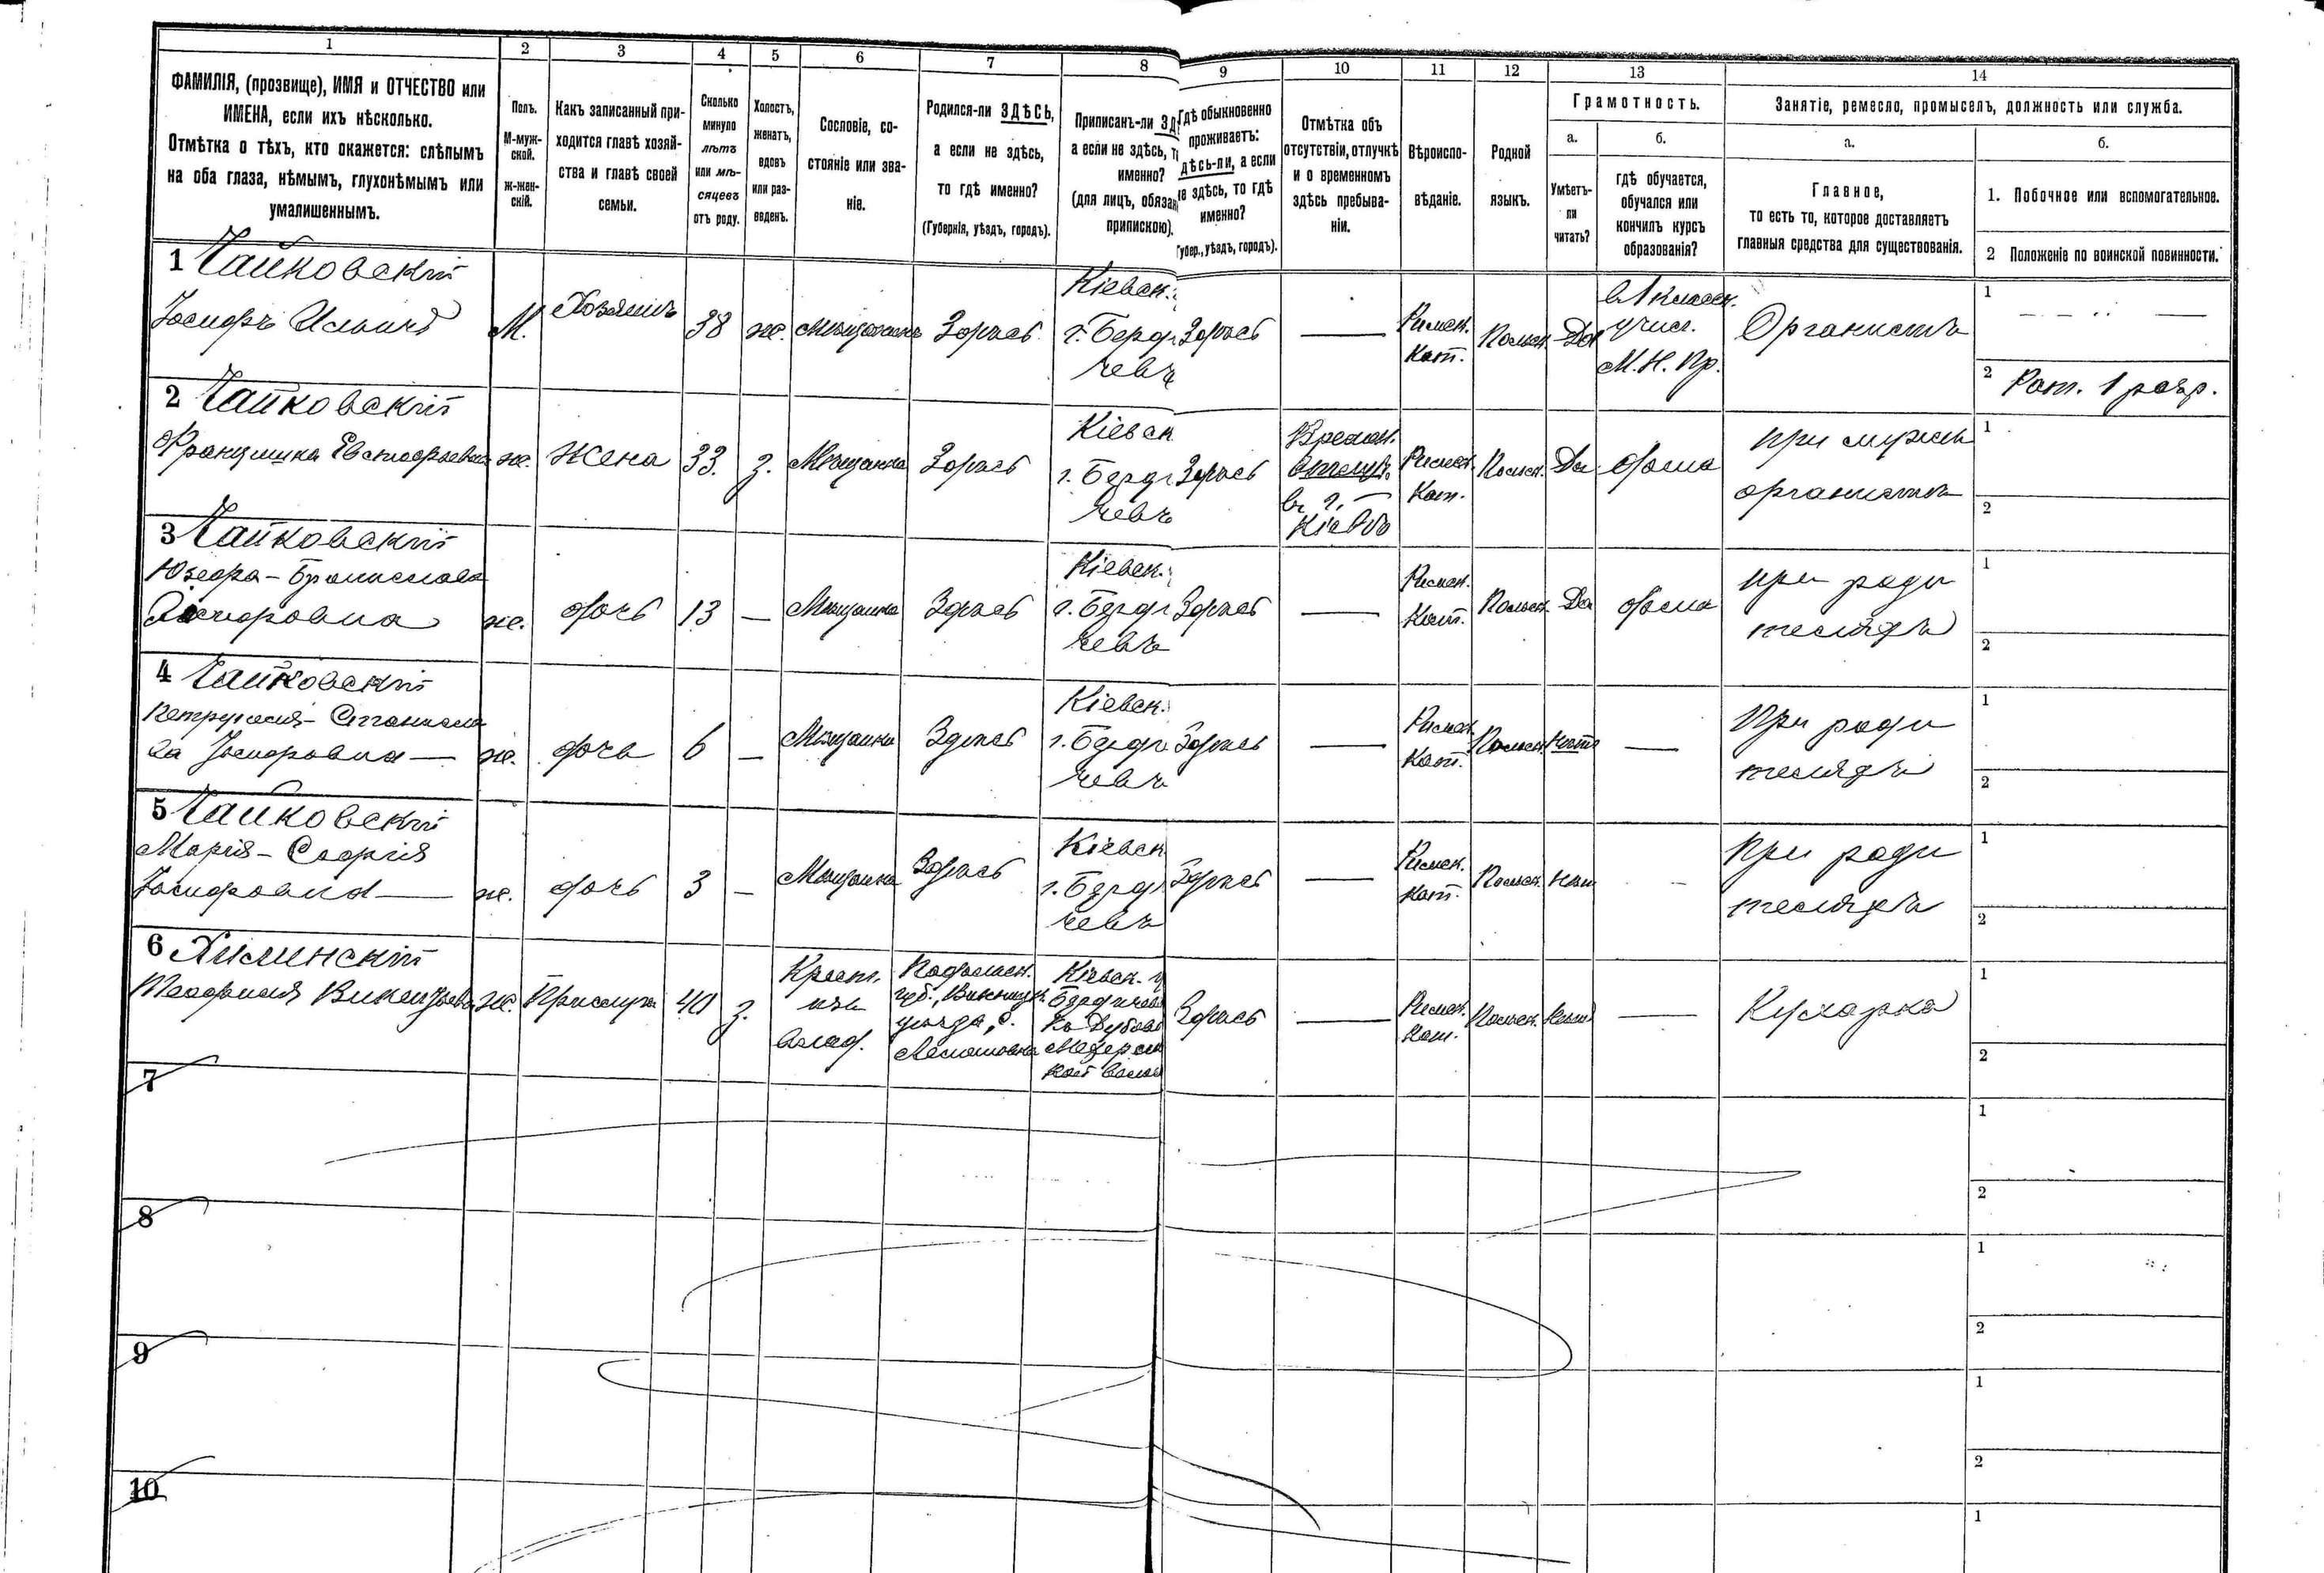 1
2
3
4
5
6
7
8
9
10
11
12
13
14
ФАМИЛІЯ, (прозвище), ИМЯ и ОТЧЕСТВО или
ИМЕНА, если ихъ нѣсколько.
Отмѣтка о тѣхъ, кто окажется: слѣпымъ
на оба глаза, нѣмымъ, глухонѣмымъ или
умалишеннымъ.
Полъ.
М-муж-
ской.
Ж-жен-
скій.
Какъ записанный при-
ходится главѣ хозяй-
ства и главѣ своей
семьи.
Сколько
минуло
лѣтъ
или мѣ-
сяцевъ
отъ роду.
Холостъ,
женатъ,
вдовъ
или раз-
веденъ.
Сословіе, со-
стояніе или зва-
ніе.
Родился-ли ЗДѢСЬ,
а если не здѣсь,
то гдѣ именно?
(Губернія, уѣздъ, городъ).
Приписанъ-ли ЗД
а если не здѣсь, т
именно?
(для лицъ, обязан
припискою).
Гдѣ обыкновенно
проживаетъ:
дѣсь-ли, а если
не здѣсь, то гдѣ
именно?
Губер., уѣздъ, городъ).
Отмѣтка объ
отсутствіи, отлучкѣ
и о временномъ
здѣсь пребыва-
ніи.
Вѣроиспо-
вѣданіе.
Родной
языкъ.
Грамотность.
а.
Умѣетъ-
ли
читать?
б.
гдѣ обучается,
обучался или
кончилъ курсъ
образованія?
Занятіе, ремесло, промыселъ, должность или служба.
а.
Главное,
то есть то, которое доставляетъ
главныя средства для существованія.
б.
1. Побочное или вспомогательное.
2 Положеніе по воинской повинности.
1 Чайковскій
Іосифъ Ильичъ
М.
Хозяинъ
38
ж.
Мѣщанинъ
Здѣсь
Кіевск.
г. Берди
чевъ
Здѣсь
—
Римск.
Кат.
Польск.
Да
в 1 класс.
учил.
М. Н. Пр.
Органистъ
1 —
2 Рат. 1 разр.
2 Чайковскій
Францишка Евстафьевна
ж.
Жена
33.
з.
Мѣщанка
Здѣсь
Кіевск
г. Берди
чевъ
Здѣсь
Времен.
отлуч.
въ г.
Кіевѣ
Римск.
Кат.
Польск.
Да
дома
при мужѣ
органистѣ
1
2
3 Чайковскій
Юзефа-Бронислава
Іосифовна
ж.
дочь
13
—
Мѣщанка
Здѣсь
Кіевск.
г. Берди
чевъ
Здѣсь
—
Римск.
Кат.
Польск.
Да
дома
при роди
теляхъ
1
2
4 Чайковскій
ва Іосифовна —
ж.
дочь
6
—
Мѣщанка
Здѣсь
Кіевск.
г. Берди
чевъ
Здѣсь
—
Римск.
Кат.
Польск.
Нѣтъ
—
При роди
теляхъ
1
2
5 Чайковскій
Марія-Софія
Іосифовна —
ж.
дочь
3
—
Мѣщанка
Здѣсь
Кіевск
г. Берди
чевъ
Здѣсь
—
Римск.
Кат.
Польск.
Нѣтъ
—
При роди
теляхъ
1
2
6 Хилинскій
Теофилия Викентьевна
ж.
Прислуга
40
з.
Крест.
изъ
влад.
Подольск.
губ., Винницк.
уѣзда, с.
Кіевск. у
Бердичевс
Здѣсь
—
Римск.
Кат.
Польск.
Нѣтъ
—
Кухарка
1
2
7
1
2
8
1
2
9
1
2
10
1